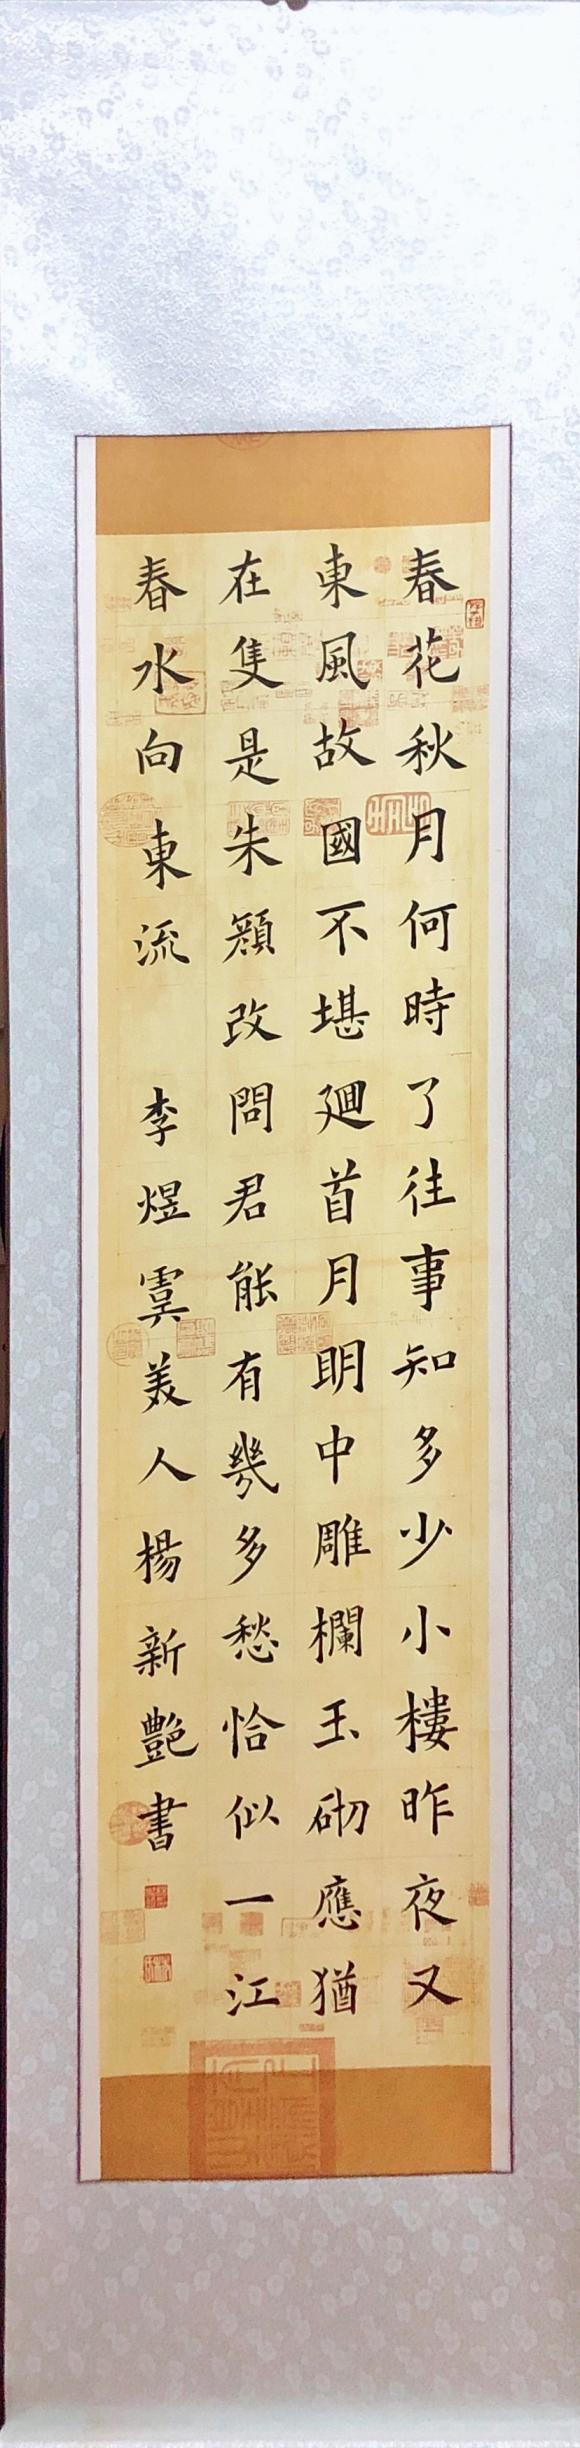 春花秋月何時了往事知多少小樓昨夜又
東風故國不堪迴首月明中雕欄玉砌應猶
在隻是朱顏改問君能有幾多愁恰似一江
春水向東流 李煜虞美人楊新艷書